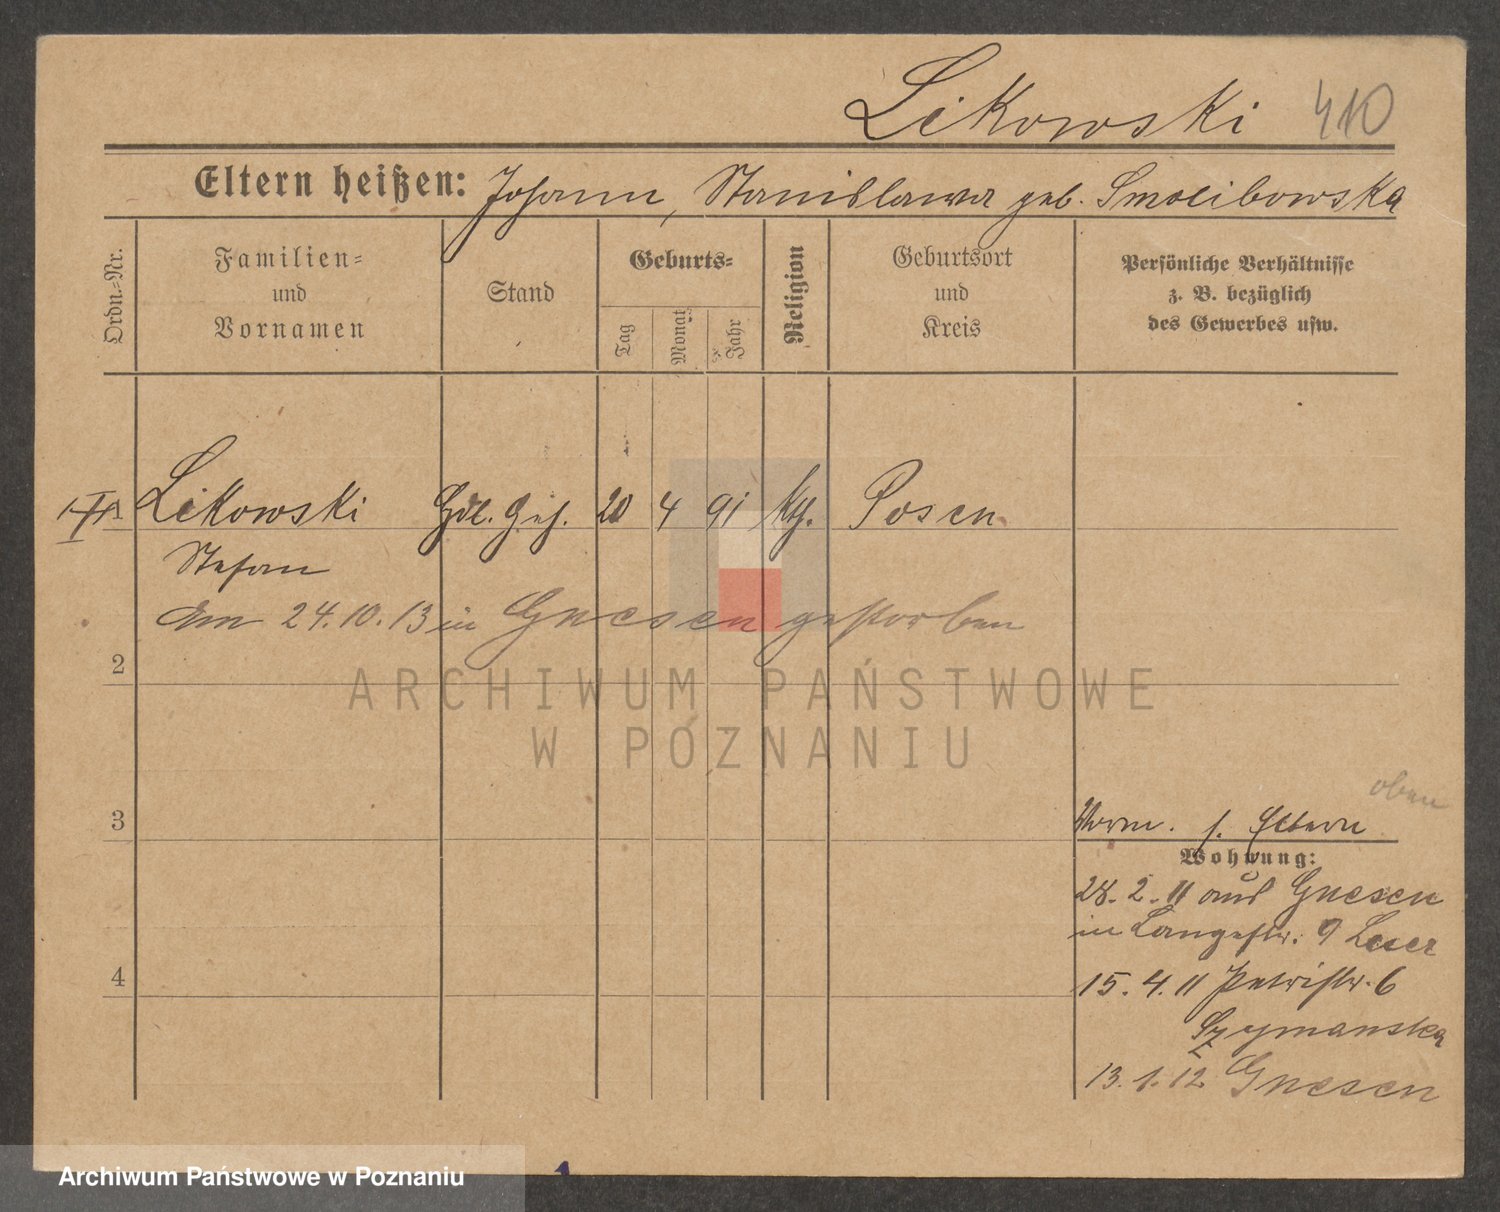 Likowski 410
Eltern heißen: Johann, Stanislawa geb. Smolibowska
Ordn.-Nr.
Familien-
und
Vornamen
Stand
Geburts-
Tag
Monat
Jahr
Religion
Geburtsort
und
Kreis
Persönliche Verhältnisse
z. B. bezüglich
des Gewerbes usw.
1 Likowski Hdl. Geh. 20 4 91 kth. Posen
Stefan
Am 24.10.13 in Gnesen gestorben
2
ARCHIWUM PAŃSTWOWE
W POZNANIU
oben
3
Vorm. s. Eltern
Wohnung:
28. 2. 11 aus Gnesen
in Langestr. 9 Leser
4
15. 4. 11 Petristr. 6
Szymanska
13. 1. 12 Gnesen
Archiwum Państwowe w Poznaniu